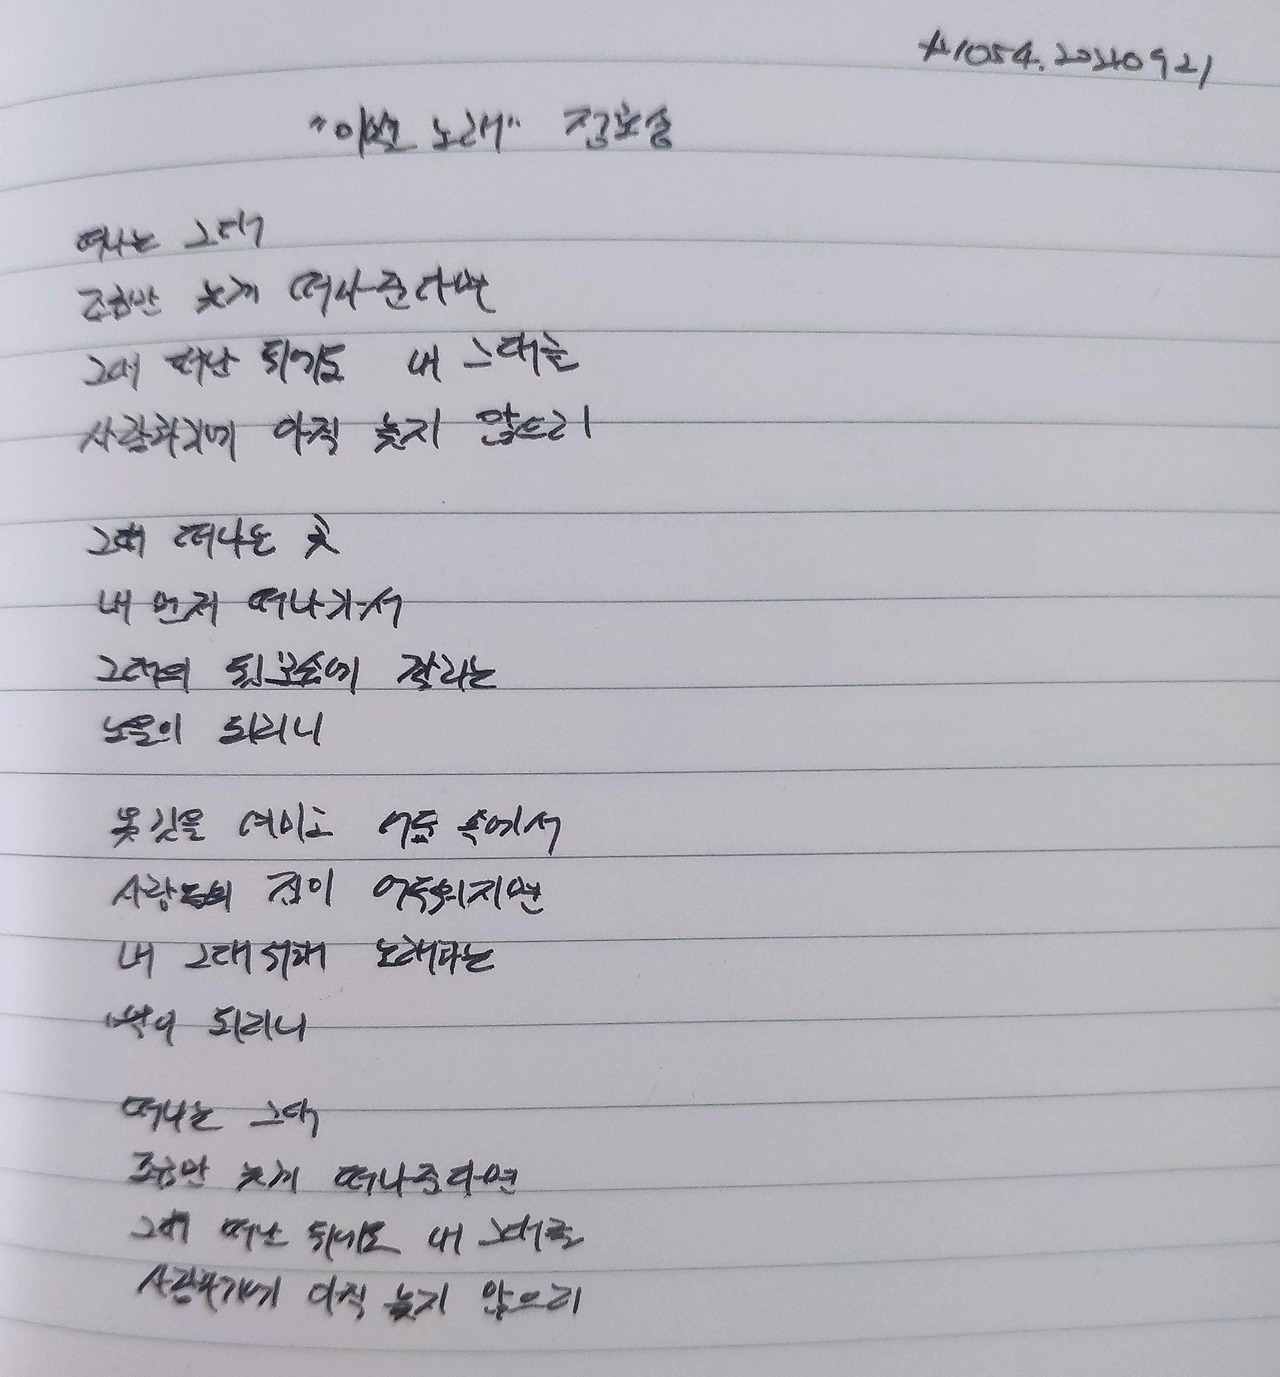 #1054. 20240921
"이별 노래" 정호승
떠나는 그대
조금만 늦게 떠나준다면
그대 떠난 뒤에도 내 그대를
사랑하기에 아직 늦지 않으리
그대 떠나는 곳
내 먼저 떠나가서
그대의 뒷모습에 깔리는
노을이 되리니
옷깃을 여미고 어둠 속에서
사람들의 집이 어두워지면
내 그대 위해 노래하는
별이 되리니
떠나는 그대
조금만 늦게 떠나준다면
그대 떠난 뒤에도 내 그대를
사랑하기에 아직 늦지 않으리